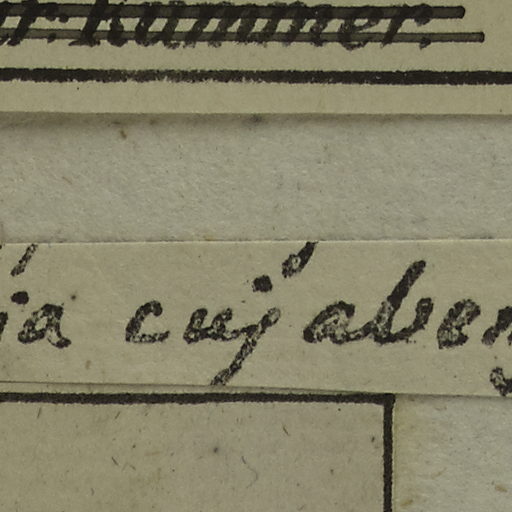 r. Kummer.
ia cujaben